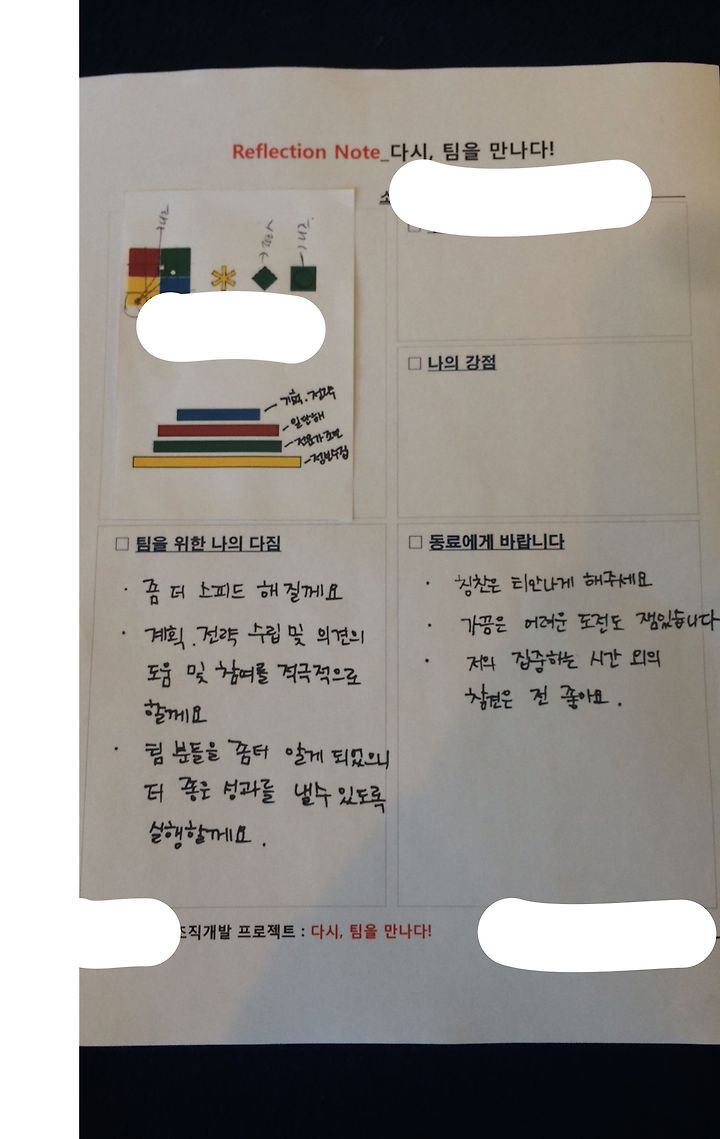 Reflection Note_다시, 팀을 만나다!
기획.전략
일단해
전문가조언
정보수집
□ 나의 강점
□ 팀을 위한 나의 다짐
· 좀 더 스피드 해질께요
· 계획.전략 수립 및 의견의
도움 및 참여를 적극적으로
할께요
· 팀 분들을 좀터 알게 되었으니
터 좋은 성과를 낼수 있도록
실행할께요.
□ 동료에게 바랍니다
· 칭찬은 티안나게 해주세요
· 가끔은 어려운 도전도 잼있습니다
· 저의 집중하는 시간 외의
참견은 전 좋아요.
조직개발 프로젝트 : 다시, 팀을 만나다!